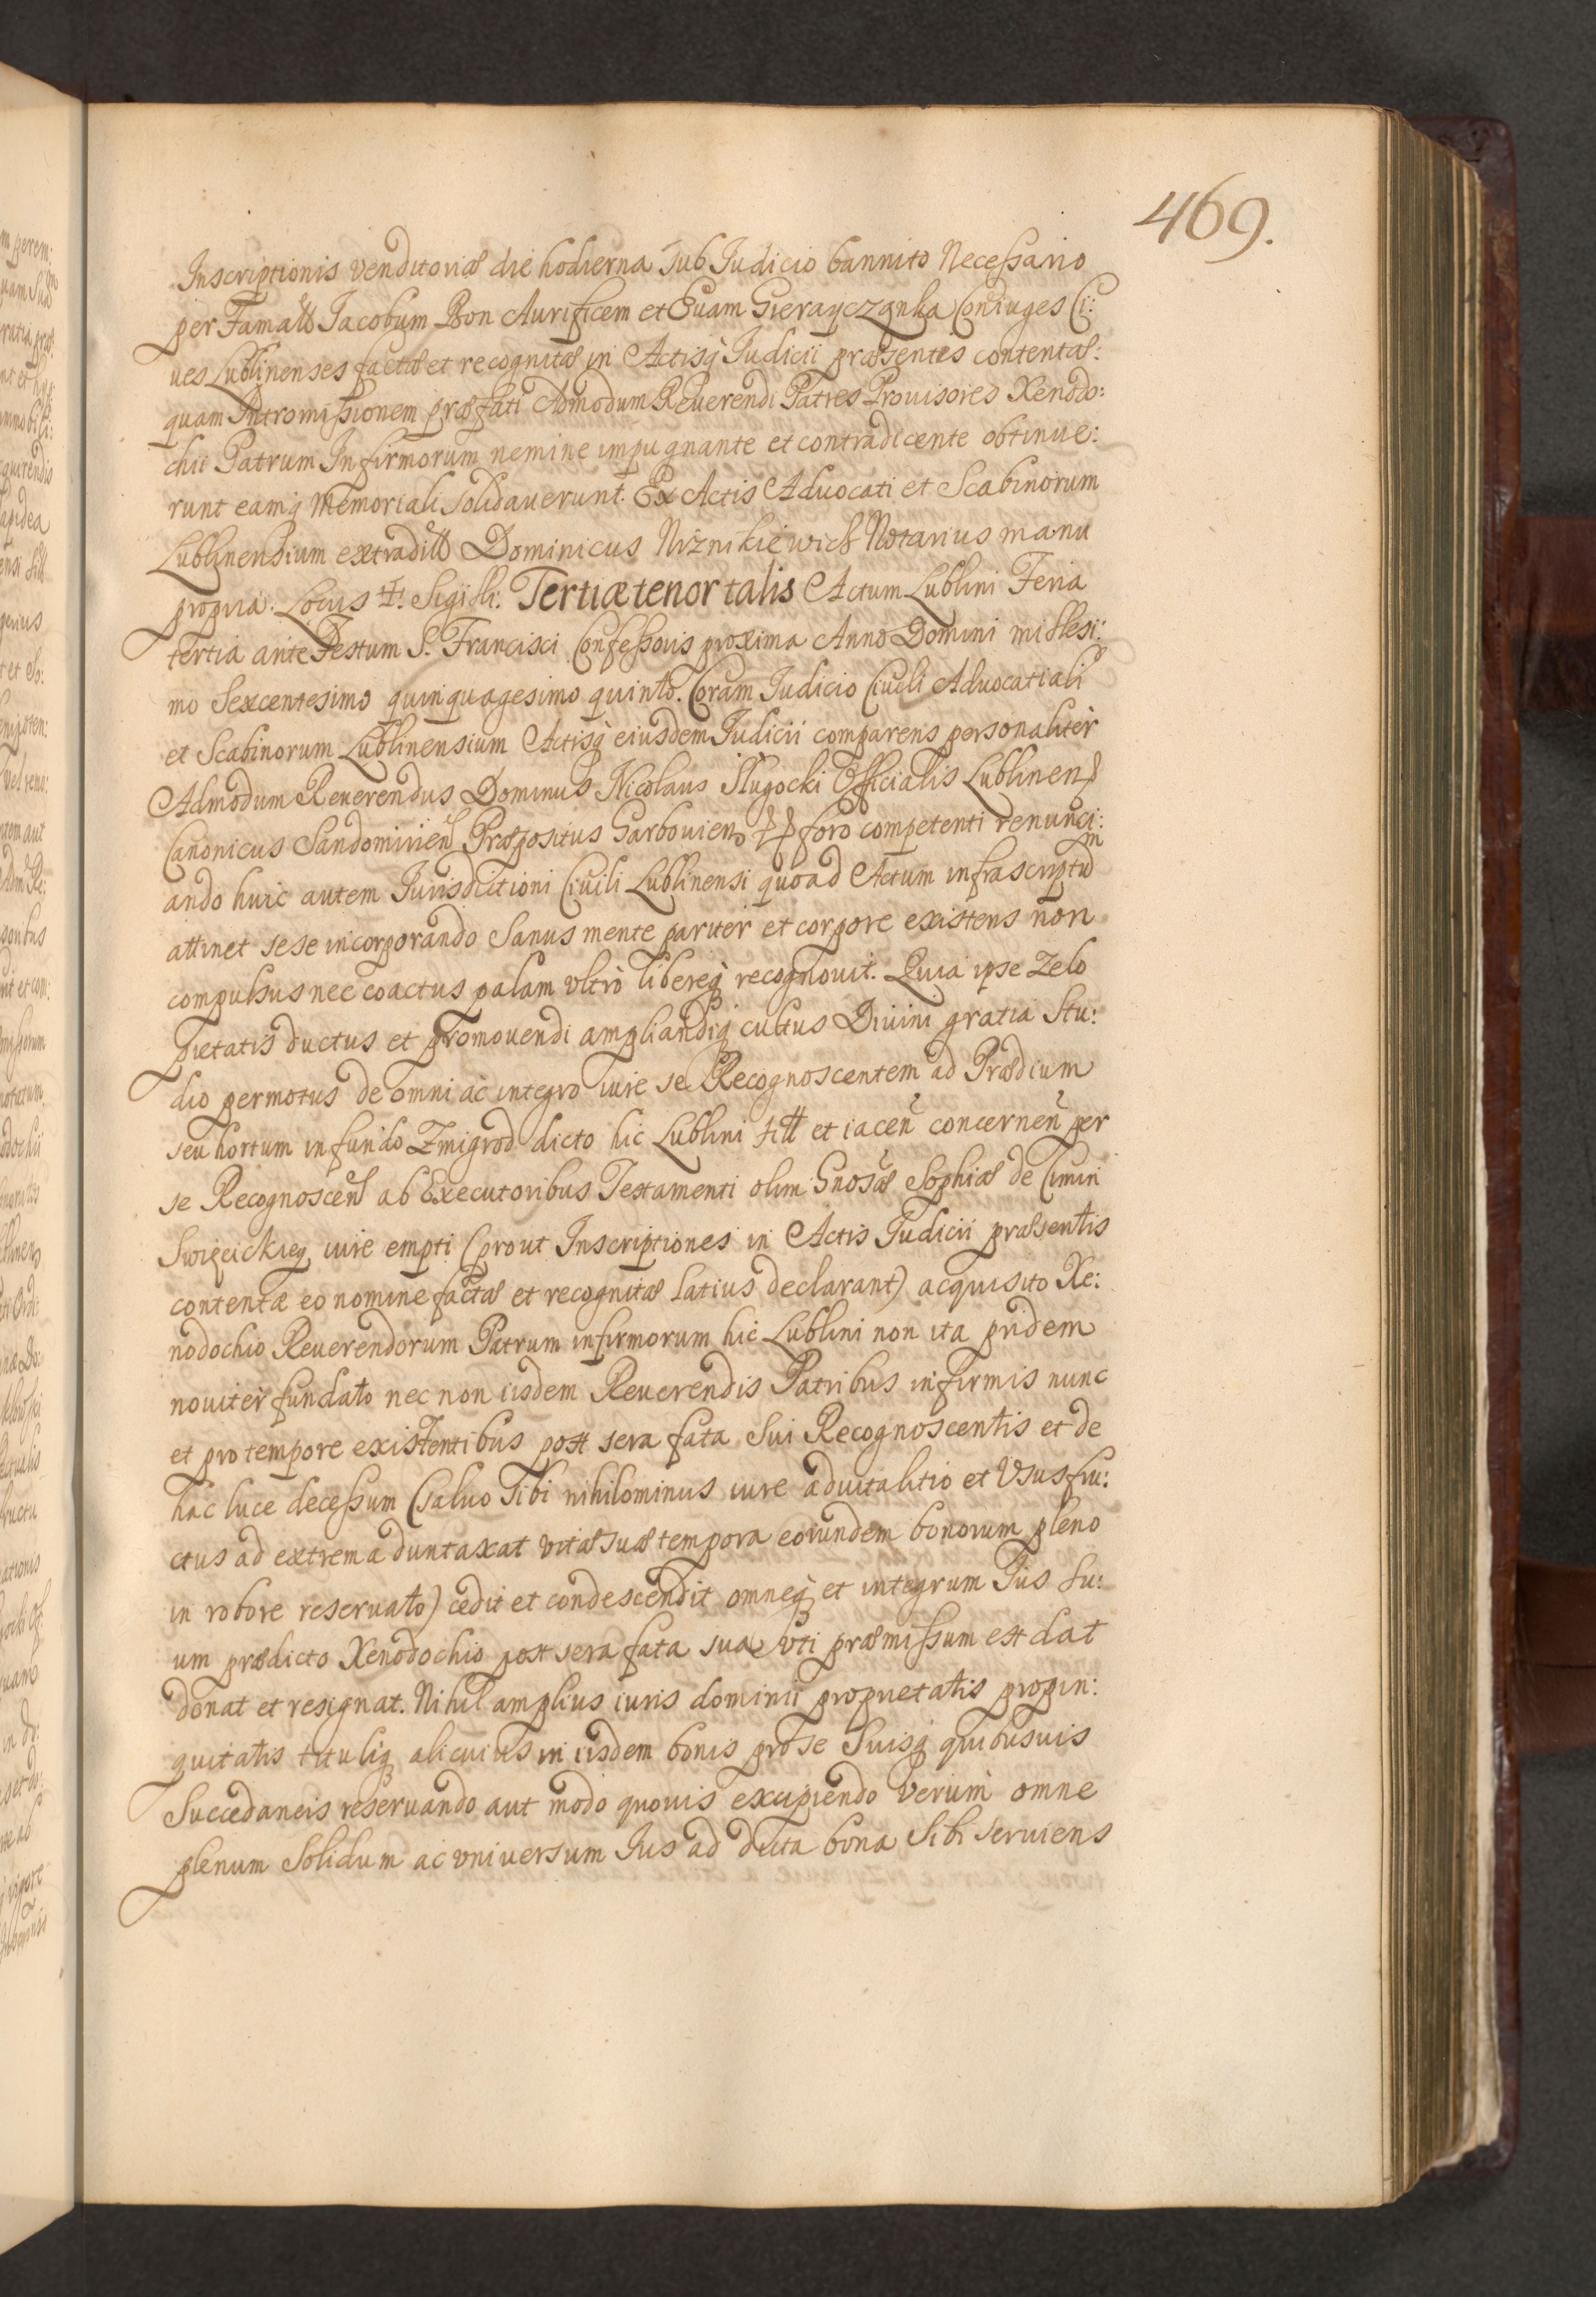 469.
Inscriptionis venditoriæ die hodierna sub Judicio bannito Necessario
per Famatt Jacobum Bon Aurificem et Euam Gieraÿczanka Coniuges Ci:
ues Lublinenses factæ et recognitæ in Actisq Judicii præsentes contentæ:
quam Intromissionem præfati Admodum Reuerendi Patres Prouisores Xenodo:
chii Patrum Infirmorum nemine impugnante et contradicente obtinue:
runt eamq Memoriali solidauerunt. Ex Actis Aduocati et Scabinorum
Lublinensium extraditt Dominicus Niżnikiewicz Notarius manu
propria. Locus ✝. Sigilli. Tertiæ tenor talis Actum Lublini Feria
tertia ante Festum S. Francisci Confessoris proxima Anno Domini millesi:
mo Sexcentesimo quinquagesimo quinto. Coram Judicio Ciuili Aduocatiali
et Scabinorum Lublinensium Actisq eiusdem Judicii comparens personaliter
Admodum Reuerendus Dominus Nicolaus Sługocki Officialis Lublinen
Canonicus Sandomirien Præpositus Garbouien foro competenti renunci:
ando huic autem Jurisdictioni Ciuili Lublinensi quoad Actum infrascriptum
attinet sese incorporando Sanus mente pariter et corpore existens non
compulsus nec coactus palam vltrò libereq recognouit. Quia ipse Zelo
Pietatis ductus et promouendi ampliandiq cultus Diuini gratia Stu:
dio permotus de omni ac integro iure se Recognoscentem ad Prædium
seu hortum in fundo Zmigrod dicto hic Lublini sitt et iacen concernen per
se Recognoscen ab Executoribus Testamenti olim Gnosæ Sophiæ de Cimin
Swięcickieÿ iure empti (prout Inscriptiones in Actis Judicii præsentis
contentæ eo nomine factæ et recognitæ latius declarant) acquisito Xe:
nodochio Reuerendorum Patrum infirmorum hic Lublini non ita pridem
nouiter fundato nec non iisdem Reuerendis Patribus infirmis nunc
et pro tempore existentibus post sera fata Sui Recognoscentis et de
hac luce decessum (saluo Sibi nihilominus iure aduitalitio et Vsusfru:
ctus ad extrema duntaxat vitæ suæ tempora eorundem bonorum pleno
in robore reseruato) cedit et condescendit omneq et integrum Jus su:
um prædicto Xenodochio post sera fata sua vti præmissum est dat
donat et resignat. Nihil amplius iuris dominii proprietatis propin:
quitatis tituliq alicuius in iisdem bonis pro se Suisq quibusuis
Succedaneis reseruando aut modo quouis excipiendo verum omne
plenum Solidum ac vniuersum Jus ad dicta bona Sibi seruiens